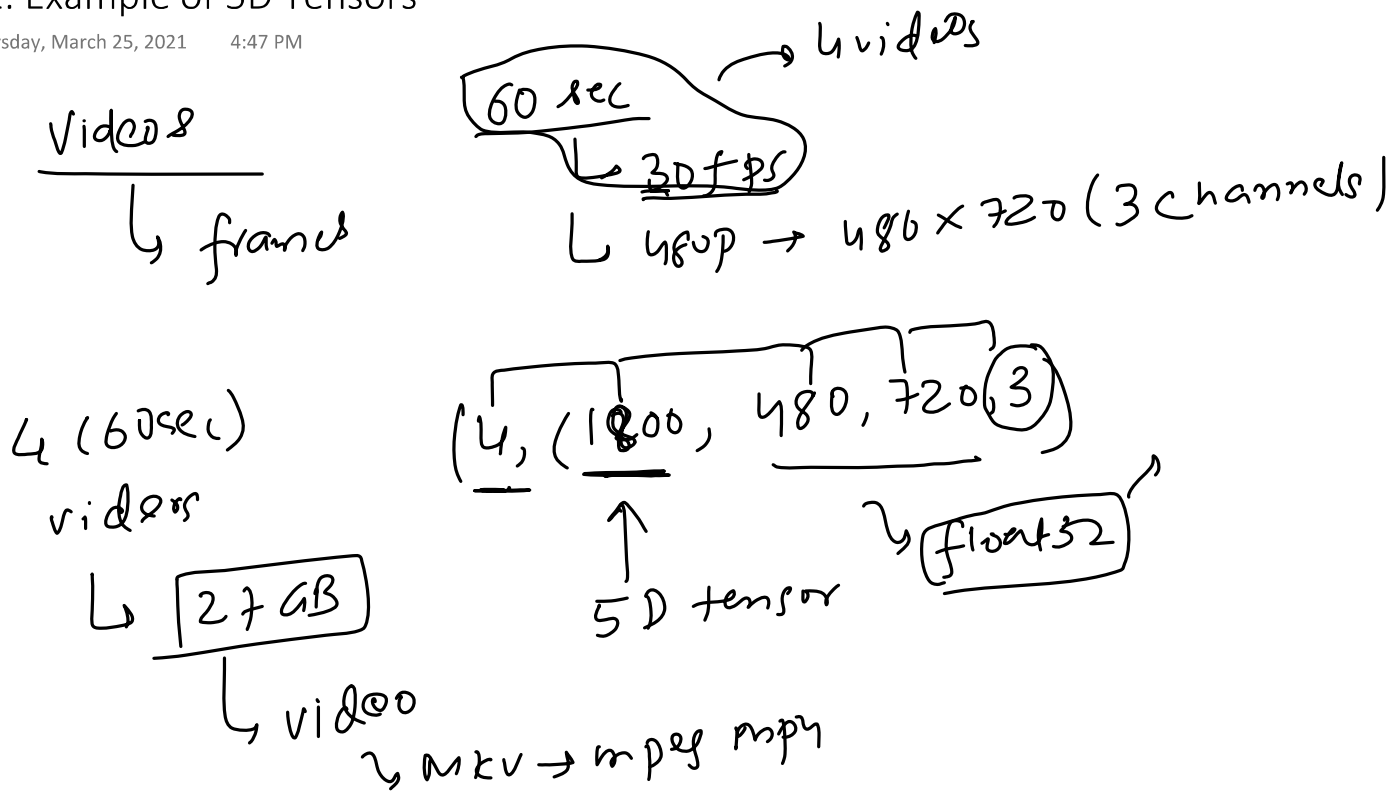 : Example of 5D Tensors
rsday, March 25, 2021 4:47 PM
Videos
↳ frames
60 sec → 4 videos
↳ 30 fps
↳ 480p → 480 × 720 (3 channels)
4 (60sec)
videos
↳ 27 GB
↳ video
↘ mkv → mpeg mp4
(4, (1800, 480, 720, 3)
↑
5D tensor
↘ float32 ↗